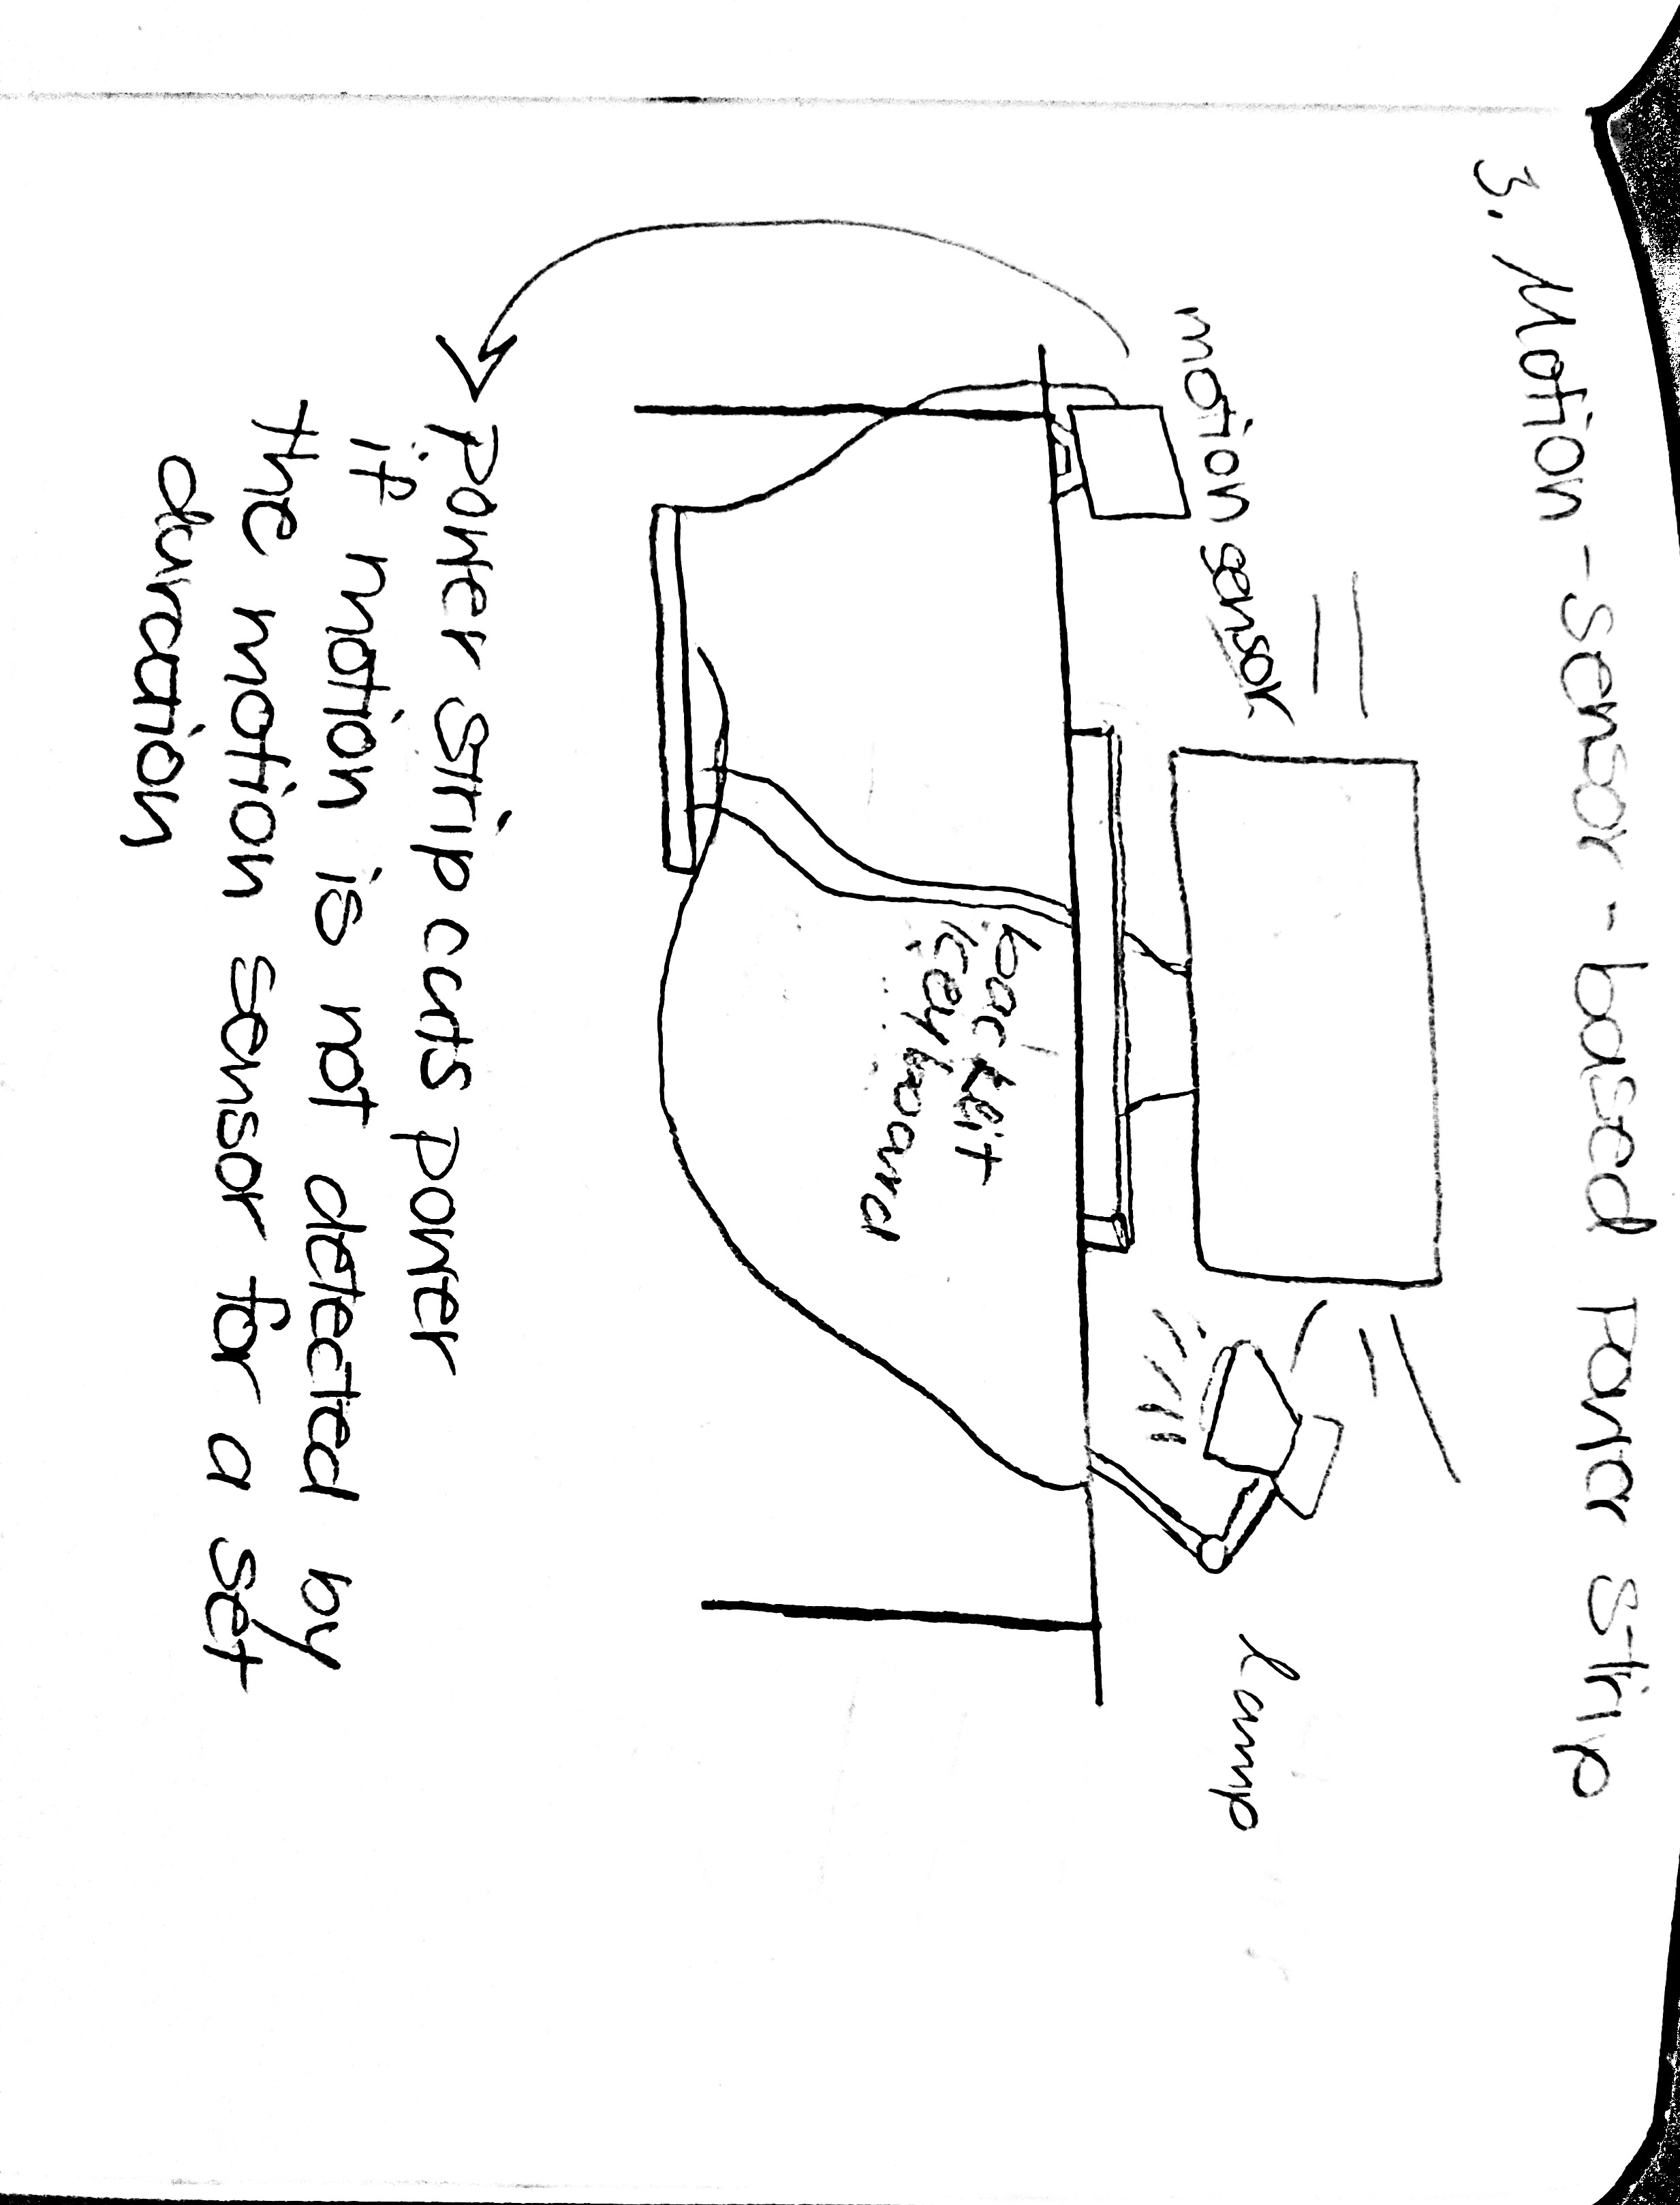 3. Motion-sensor-based Power Strip
motion sensor
lamp
backlit
keyboard
power strip cuts power
if motion is not detected by
the motion sensor for a set
duration